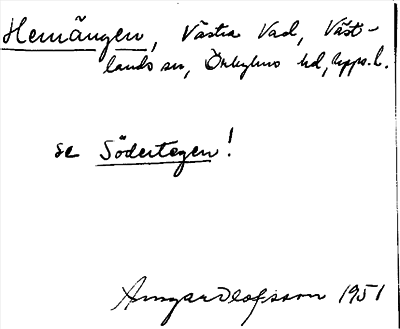 Hemängen, Västra Vad, Väst-
lands sn, Örbyhus hd, Upps. l.
se Södertegen!
Ansgar Olofsson 1951